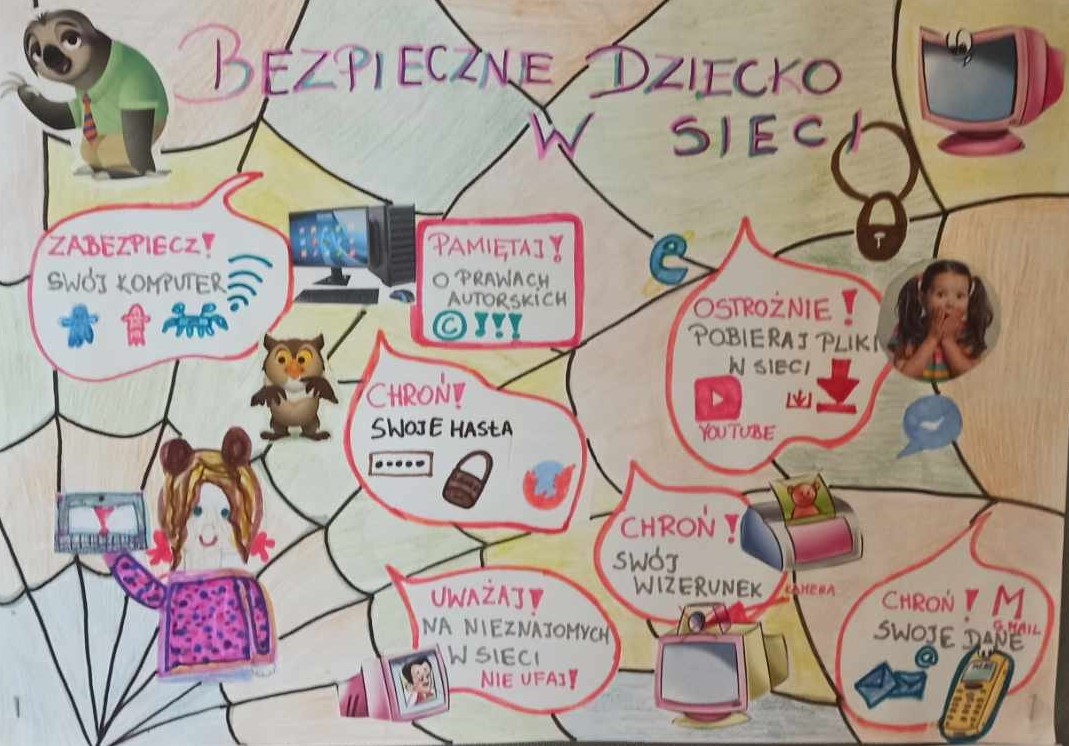 BEZPIECZNE DZIECKO
W SIECI
ZABEZPIECZ!
SWÓJ KOMPUTER
PAMIĘTAJ!
O PRAWACH
AUTORSKICH
© !!!
OSTROŻNIE!
POBIERAJ PLIKI
W SIECI
YOUTUBE
CHROŃ!
SWOJE HASŁA
CHROŃ!
SWÓJ
WIZERUNEK
KAMERA
UWAŻAJ!
NA NIEZNAJOMYCH
W SIECI
NIE UFAJ!
CHROŃ! M
G.MAIL
SWOJE DANE
@